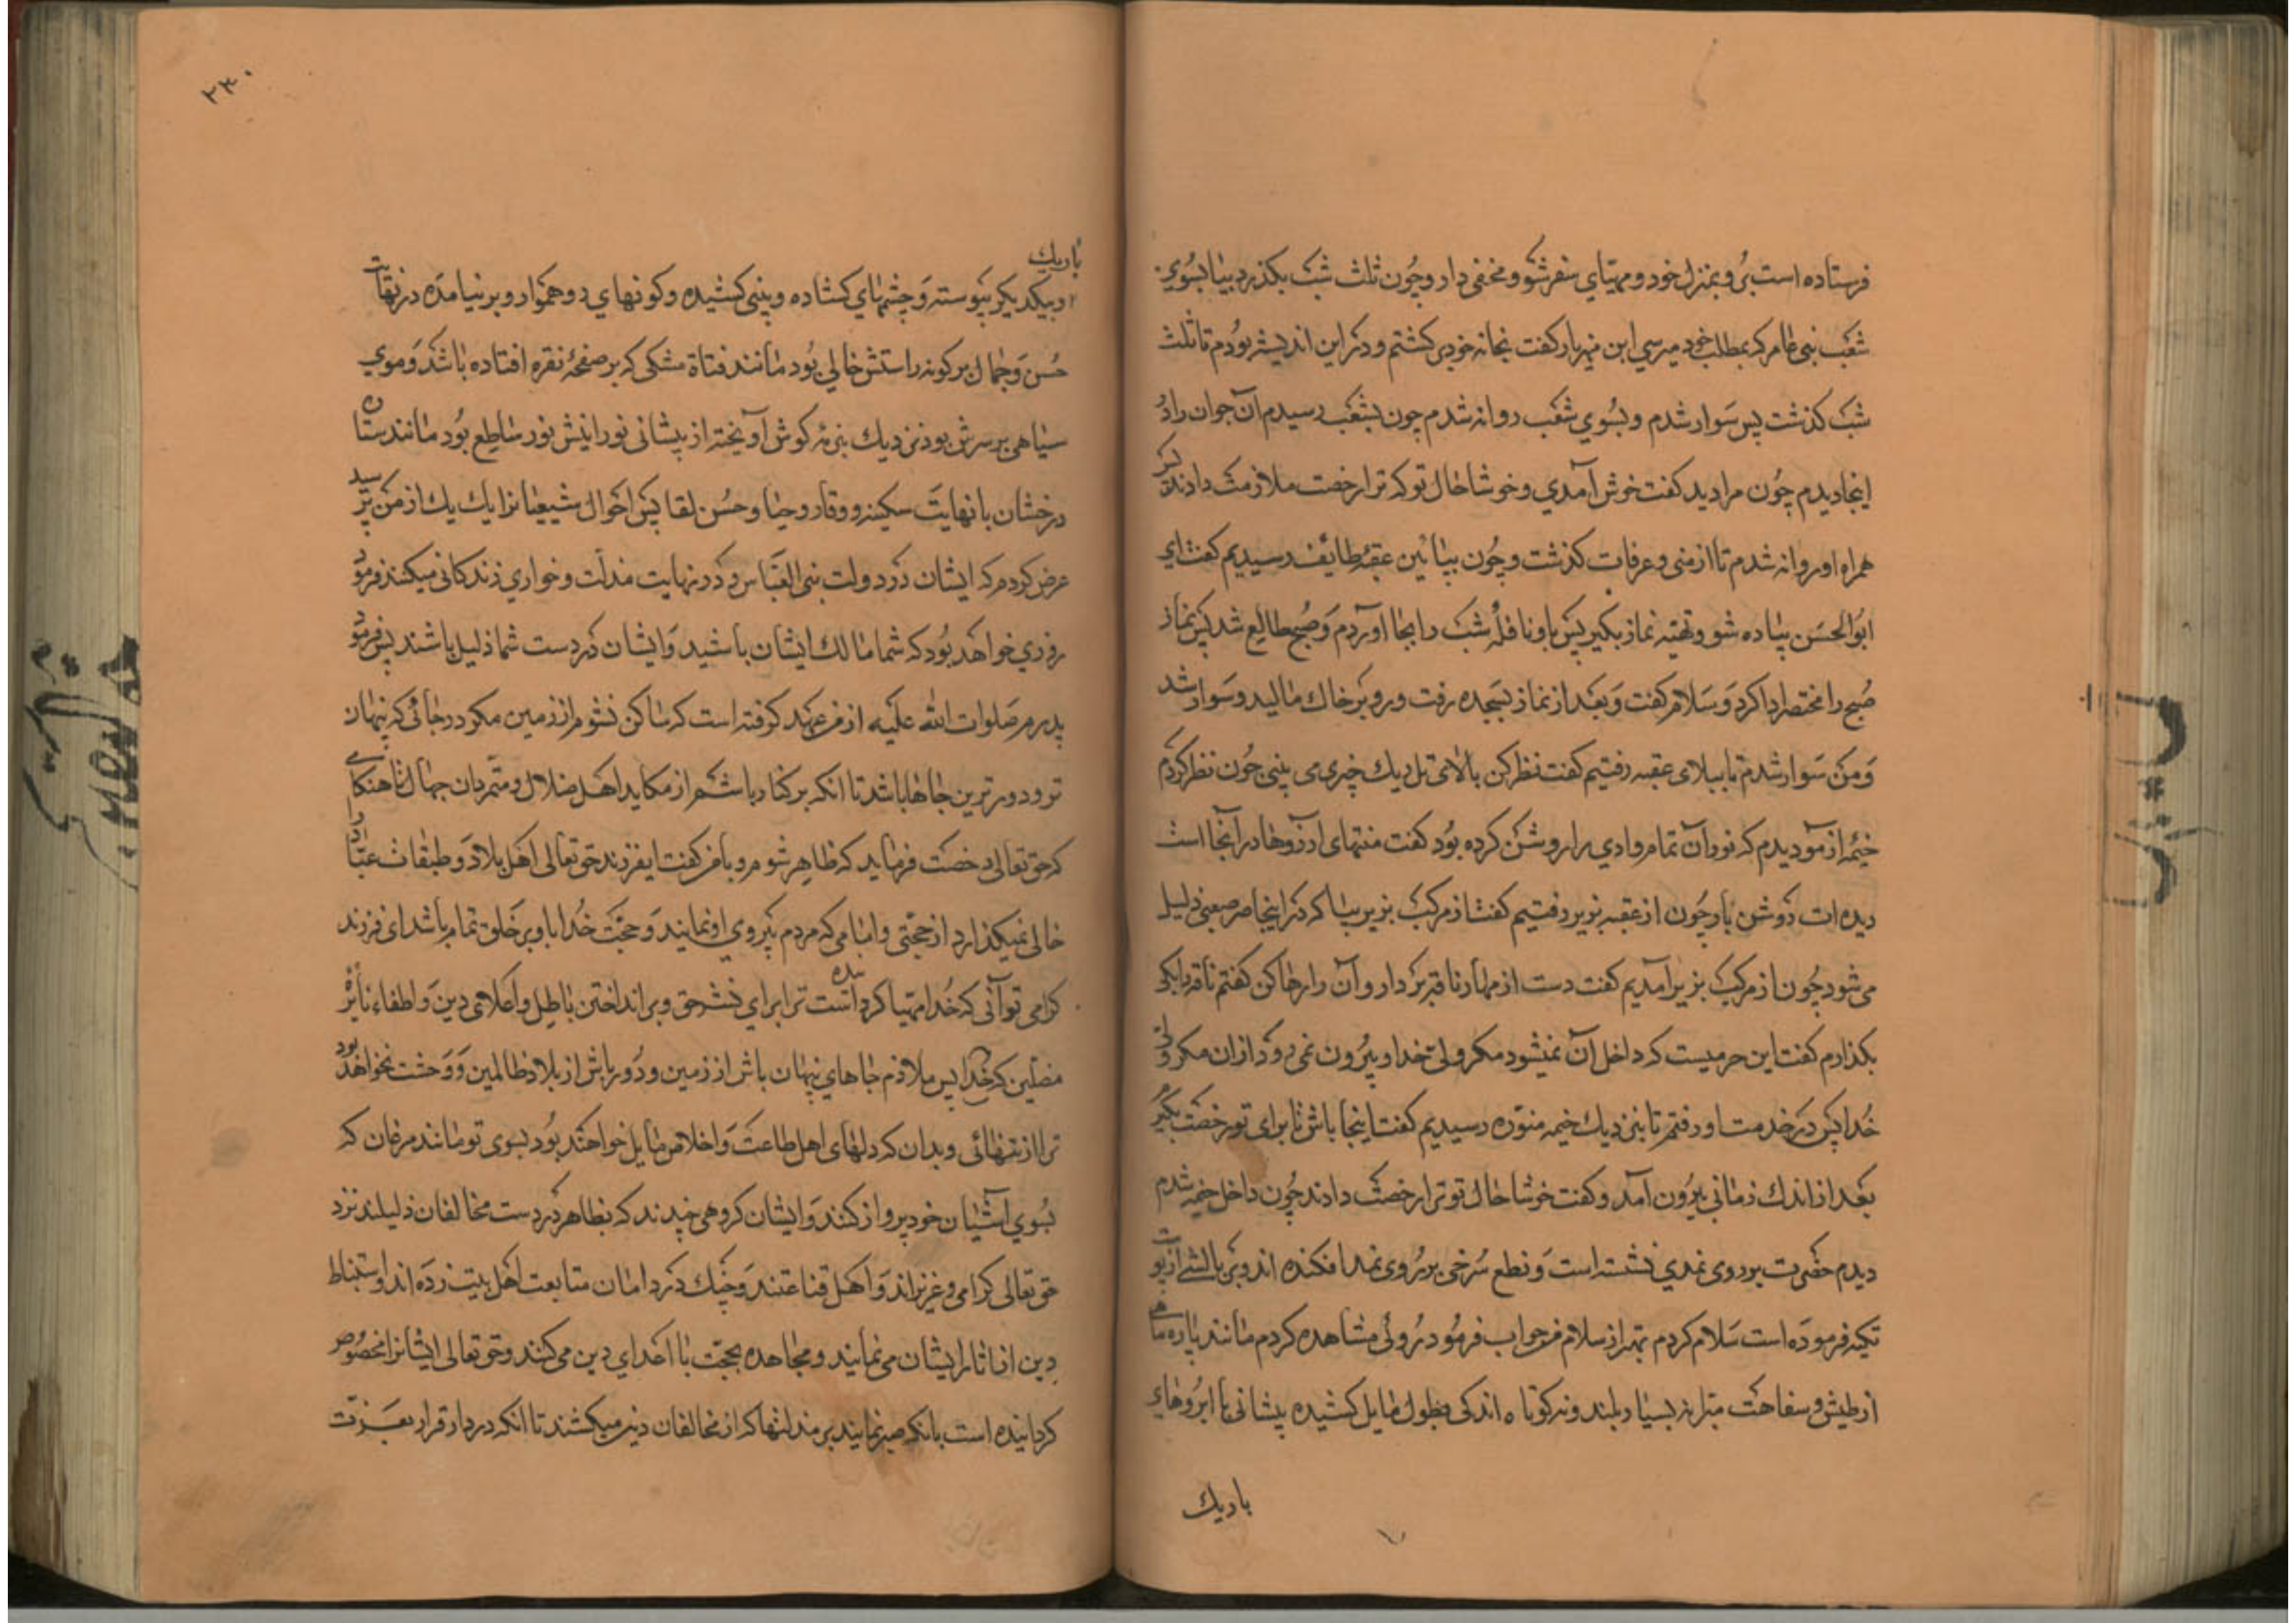 فرستاده است برو بمنزل خود و مهیّای سفر شو و مخفی دار و چون ثلث شب بکذرد بیا بسوی
شعب بنی عامر که بمطلب خود میرسی ابن مهزیار کفت بخانه خود برکشتم و در این اندیشه بودم تا ثلث
شب کذشت پس سوار شدم و بسوی شعب روانه شدم چون بشعب رسیدم آن جوان را در
اینجا دیدم چون مرا دید کفت خوش آمدی و خوشا حال تو که ترا رخصت ملازمت دادند پس
همراه او روانه شدم تا از منی و عرفات کذشت و چون بپائین عقبهٔ طایف رسیدیم کفت ای
ابوالحسن پیاده شو و تهیّه نماز بکیر پس با او نافلهٔ شب را بجا آوردم و صبح طالع شد پس نماز
صبح را مختصر ادا کرد و سلام کفت و بعد از نماز بسجده رفت و رو بر خاک مالید و سوار شد
و من سوار شدم تا ببالای عقبه رفتیم کفت نظر کن بالای تل ریک چیزی می بینی چون نظر کردم
خیمه از مو دیدم که نور آن تمام وادی را روشن کرده بود کفت منتهای آرزوها در آنجا است
دیده ات روشن باد چون از عقبه بزیر رفتیم کفت از مرکب بزیر بیا که در اینجا هر صعبی ذلیل
می شود چون از مرکب بزیر آمدیم کفت دست از مهار ناقه بردار و آن را رها کن کفتم ناقه را بکی
بکذارم کفت این حرمیست که داخل آن نمیشود مکر ولی خدا و بیرون نمی رود از آن مکر ولی
خدا پس در خدمت او رفتم تا بنزدیک خیمه منوّره رسیدیم کفت اینجا باش تا برای تو رخصت بکیرم
بعد از اندک زمانی بیرون آمد و کفت خوشا حال تو ترا رخصت دادند چون داخل خیمه شدم
دیدم حضرت بر روی نمدی نشسته است و نطع سرخی بر روی نمد افکنده اند و بر بالشی از پوست
تکیه فرموده است سلام کردم بهتر از سلام من جواب فرمود روئی مشاهده کردم مانند پاره ماهی
از طیش و سفاهت مبرّا نه بسیار بلند و نه کوتاه اندکی بطول مایل کشیده پیشانی با ابروهای
باریک
۲۳۰
باریک
و بیکدیکر پیوسته و چشمهای کشاده و بینی کشیده و کونهای رو هموار و بر نیامده در نهایت
حسن و جمال بر کونه راستش خالی بود مانند فتاة مشکی که بر صفحهٔ نقره افتاده باشد و موی
سیاهی بر سرش بود نزدیک بنرمه کوش آویخته از پیشانی نورانیش نور ساطع بود مانند ستاره
درخشان با نهایت سکینه و وقار و حیا و حسن لقا پس احوال شیعیانرا یک یک از من پرسید
عرض کردم که ایشان در دولت بنی العبّاس در نهایت مذلّت و خواری زندکانی میکنند فرمود
روزی خواهد بود که شما مالک ایشان باشید و ایشان در دست شما ذلیل باشند پس فرمود
پدرم صلوات الله علیه از من عهد کوفته است که ساکن نشوم از زمین مکر در جائی که پنهان
تر و دورترین جاها باشد تا انکه بر کنار باشم از مکاید اهل ضلال و متمرّدان جهال تا هنکامی
که حق تعالی رخصت فرماید که ظاهر شوم و با من کفت ایفرزند حق تعالی اهل بلاد و طبقات عباد را
خالی نمیکذارد از حجتی و امامی که مردم پیروی او نمایند و حجّت خدا باو بر خلق تمام باشد ای فرزند
کرامی تو آنی که خدا مهیّا کرده است ترا برای نشر حق و برانداختن باطل و اعلای دین و اطفاء نایره
مضلّین پس ملازم جاهای پنهان باش از زمین و دور باش از بلاد ظالمین و وحشت نخواهد بود
ترا از تنهائی و بدان که دلهای اهل طاعت و اخلاص مایل خواهند بود بسوی تو مانند مرغان که
بسوی آشیان خود پرواز کنند و ایشان کروهی چندند که بظاهر در دست مخالفان ذلیلند نزد
حق تعالی کرامی و عزیزاند و اهل قناعتند و چنک در دامان متابعت اهل بیت زده اند و استنباط
دین از اثار ایشان می نمایند و مجاهده بحجّت با اعدای دین می کنند و حق تعالی ایشانرا مخصوص
کردانیده است بانکه صبر نمایند بر مذلتها که از مخالفان دین میکشند تا انکه در دار قرار بعزت